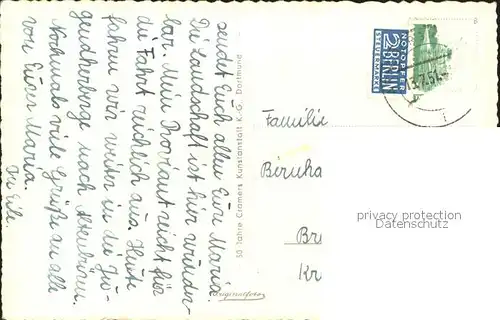 sendt Euch allen Eure Maria.
Die Landschaft ist hier wunder-
bar. Mein Proviant reicht für
die Fahrt reichlich aus. Heute
fahren wir weiter in die Ju-
gendherberge nach
Nochmals viele Grüße an alle
von Eurer Maria.
In Eile.
50 Jahre Cramers Kunstanstalt K.-G., Dortmund
Originalfoto
NOTOPFER
2 BERLIN
STEUERMARKE
Familie
Br
Kr
privacy protection
www.